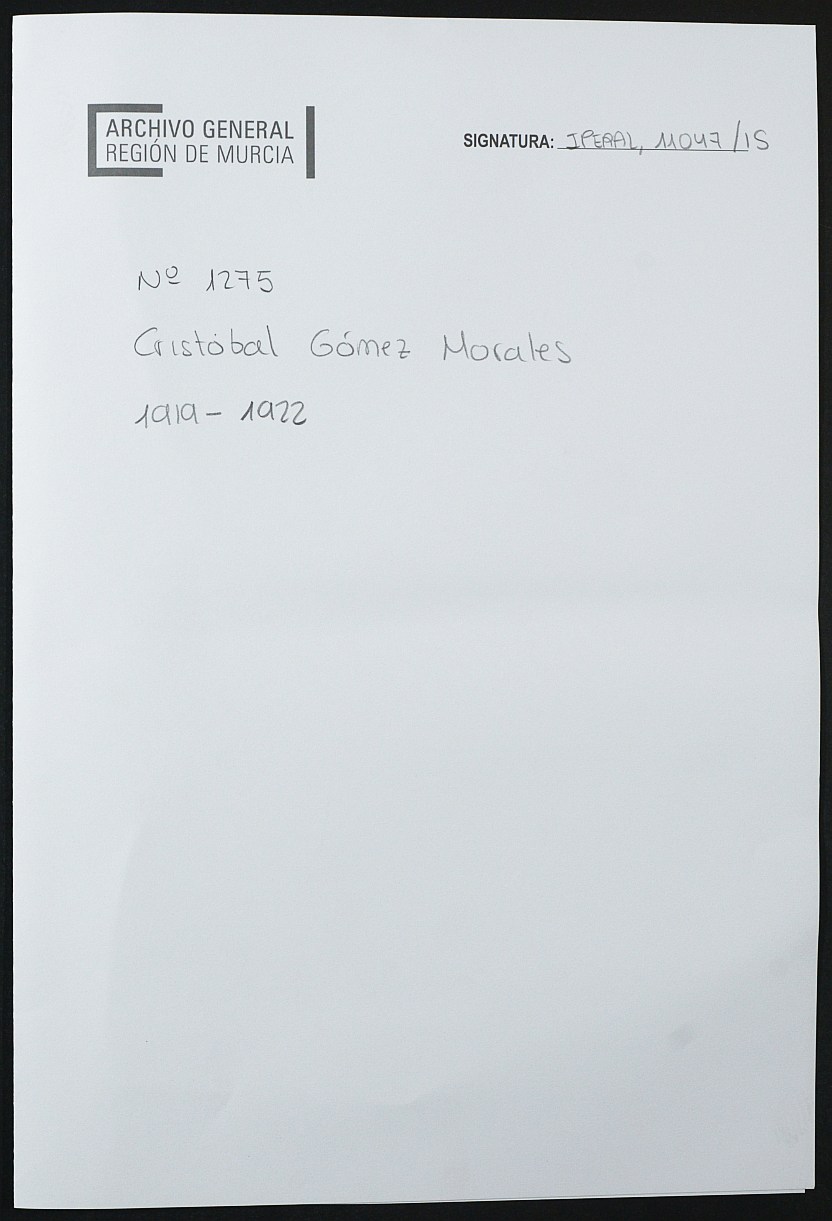 ARCHIVO GENERAL
REGIÓN DE MURCIA
SIGNATURA: IPERAL, 11047/15
Nº 1275
Cristóbal Gómez Morales
1919 - 1922